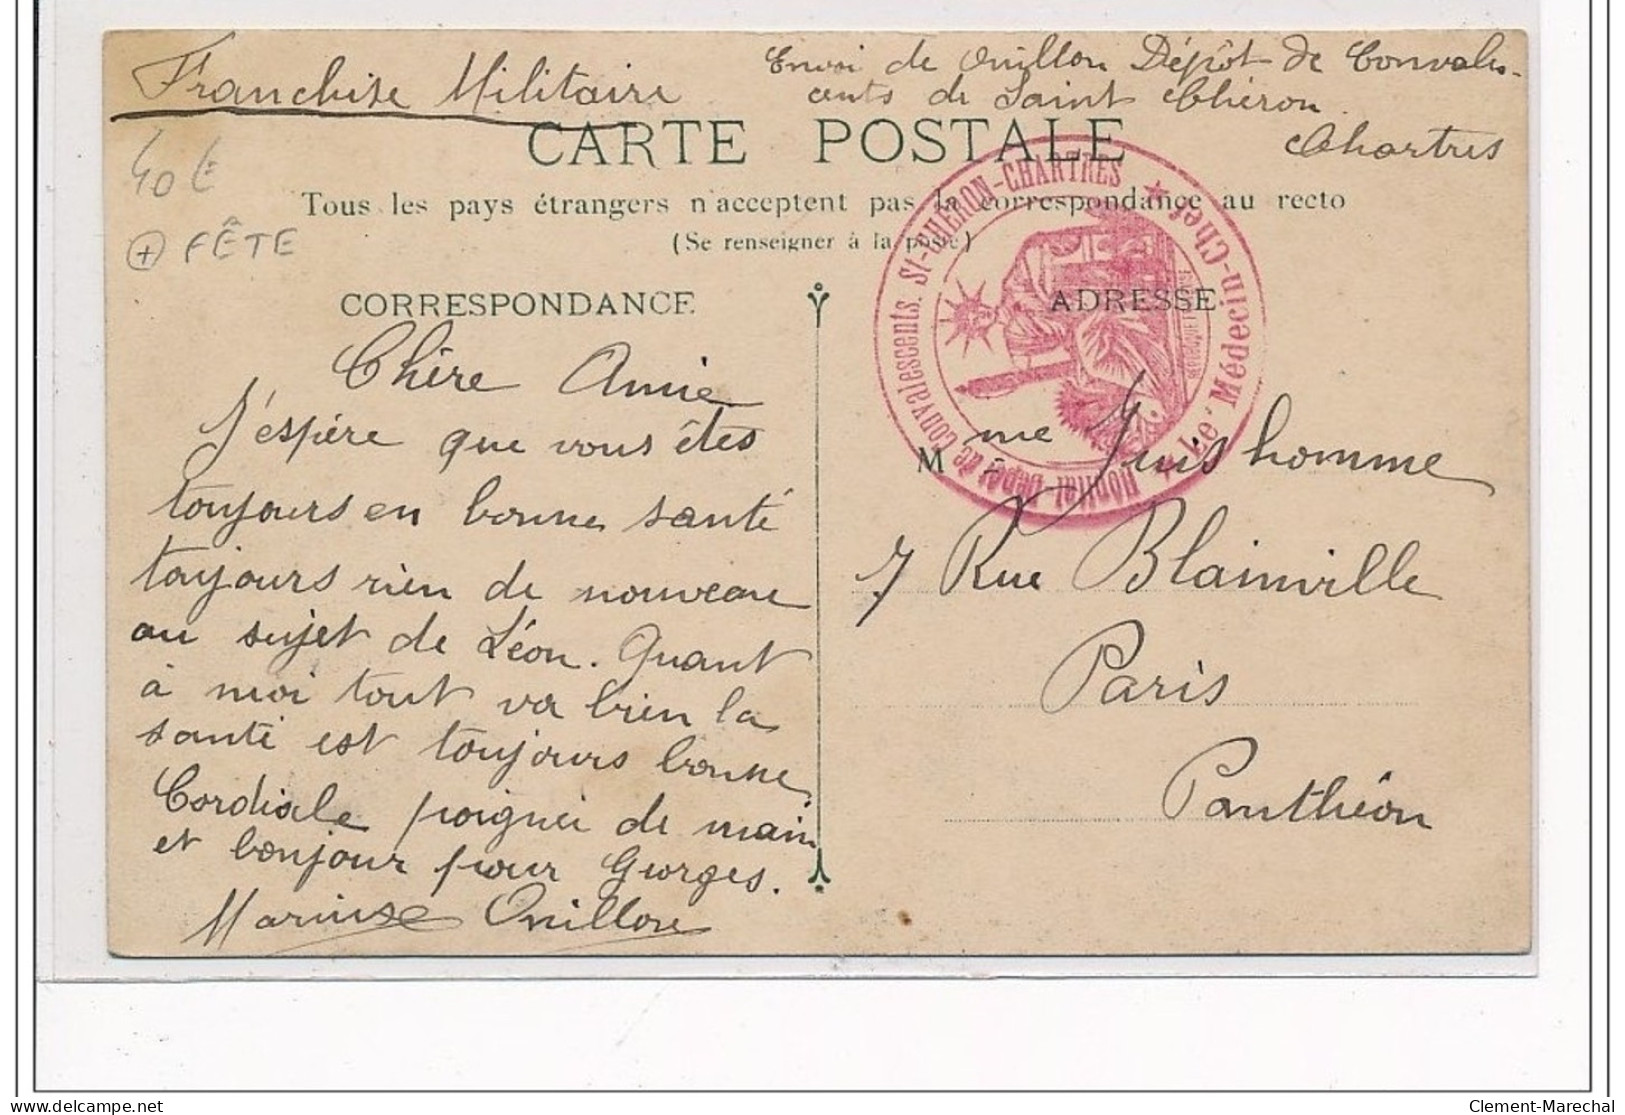 Franchise Militaire
Envoi de Ouillon Dépôt de Convales-
cents de Saint Chéron
Chartres
CARTE POSTALE
40 €
+ FÊTE
Tous les pays étrangers n'acceptent pas la correspondance au recto
(Se renseigner à la poste)
Hôpital Dépôt de Convalescents. St-CHÉRON-CHARTRES ★
Le Médecin-Chef ★
CORRESPONDANCE
ADRESSE
Chère Amie
J'espère que vous êtes
toujours en bonne santé
toujours rien de nouveau
au sujet de Léon. Quant
à moi tout va bien la
santé est toujours bonne
Cordiale poignée de main
et bonjour pour Georges.
Ouillon
M me
7 Rue Blainville
Paris
Panthéon
Clement-Marechal